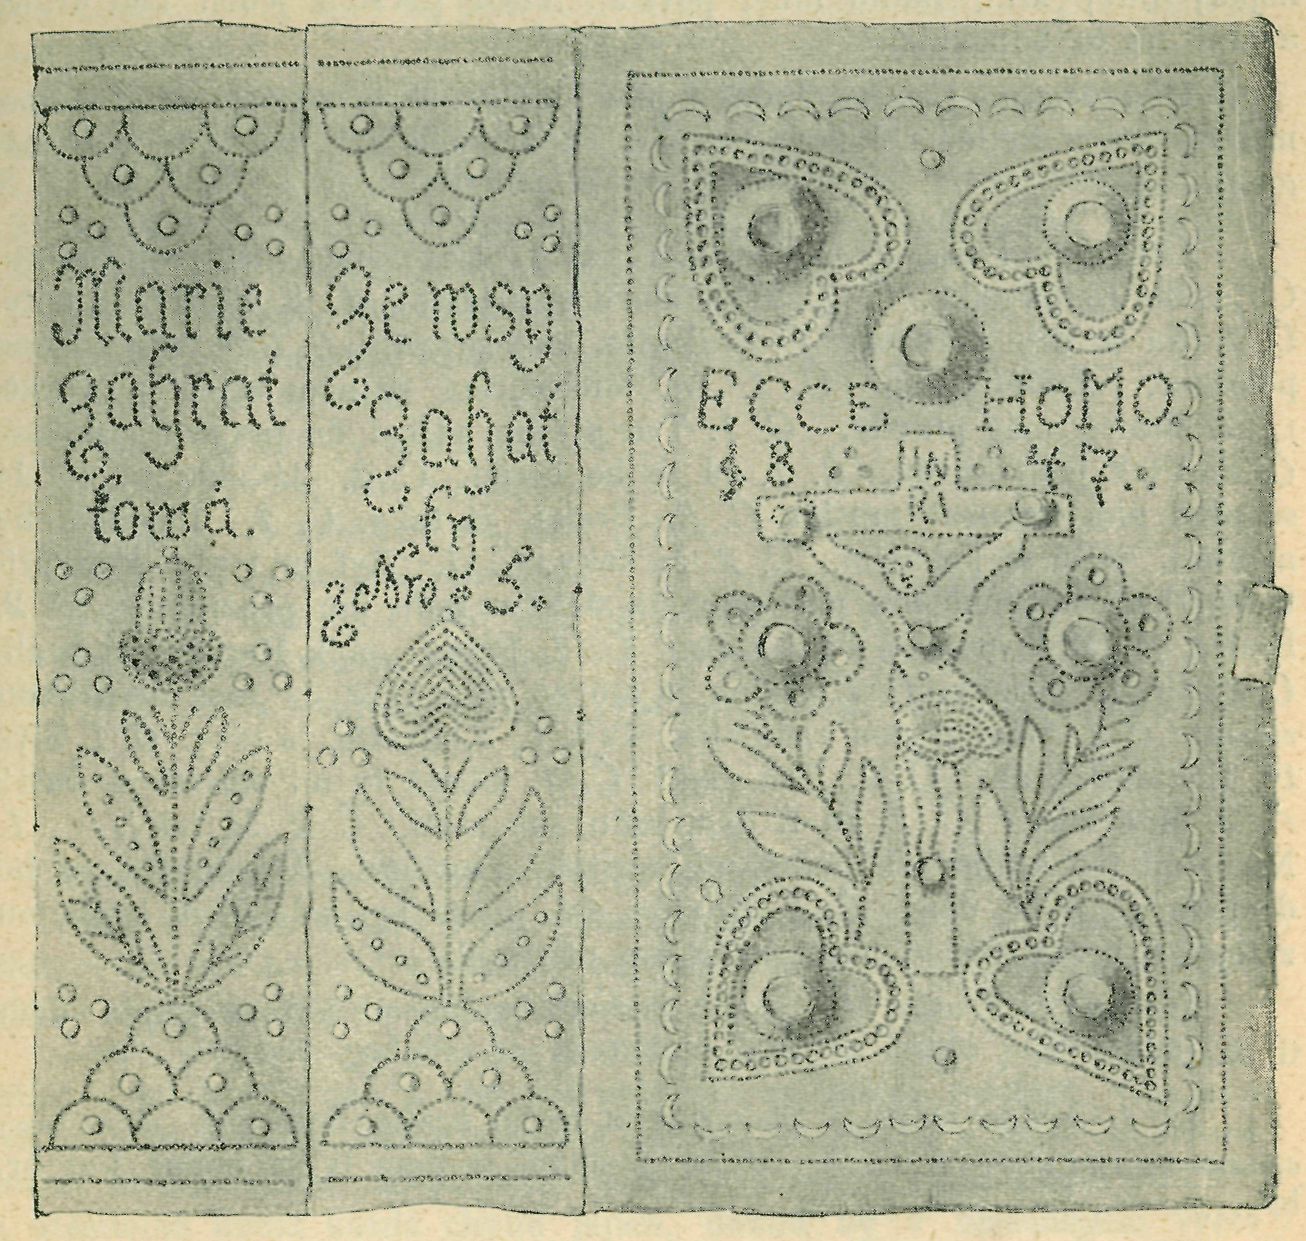 Marie
Zahrat
kowá.
Ze wsy
Zahat
ky
ze Nro : 5.
ECCE HoMO.
18 47.
IN
RI